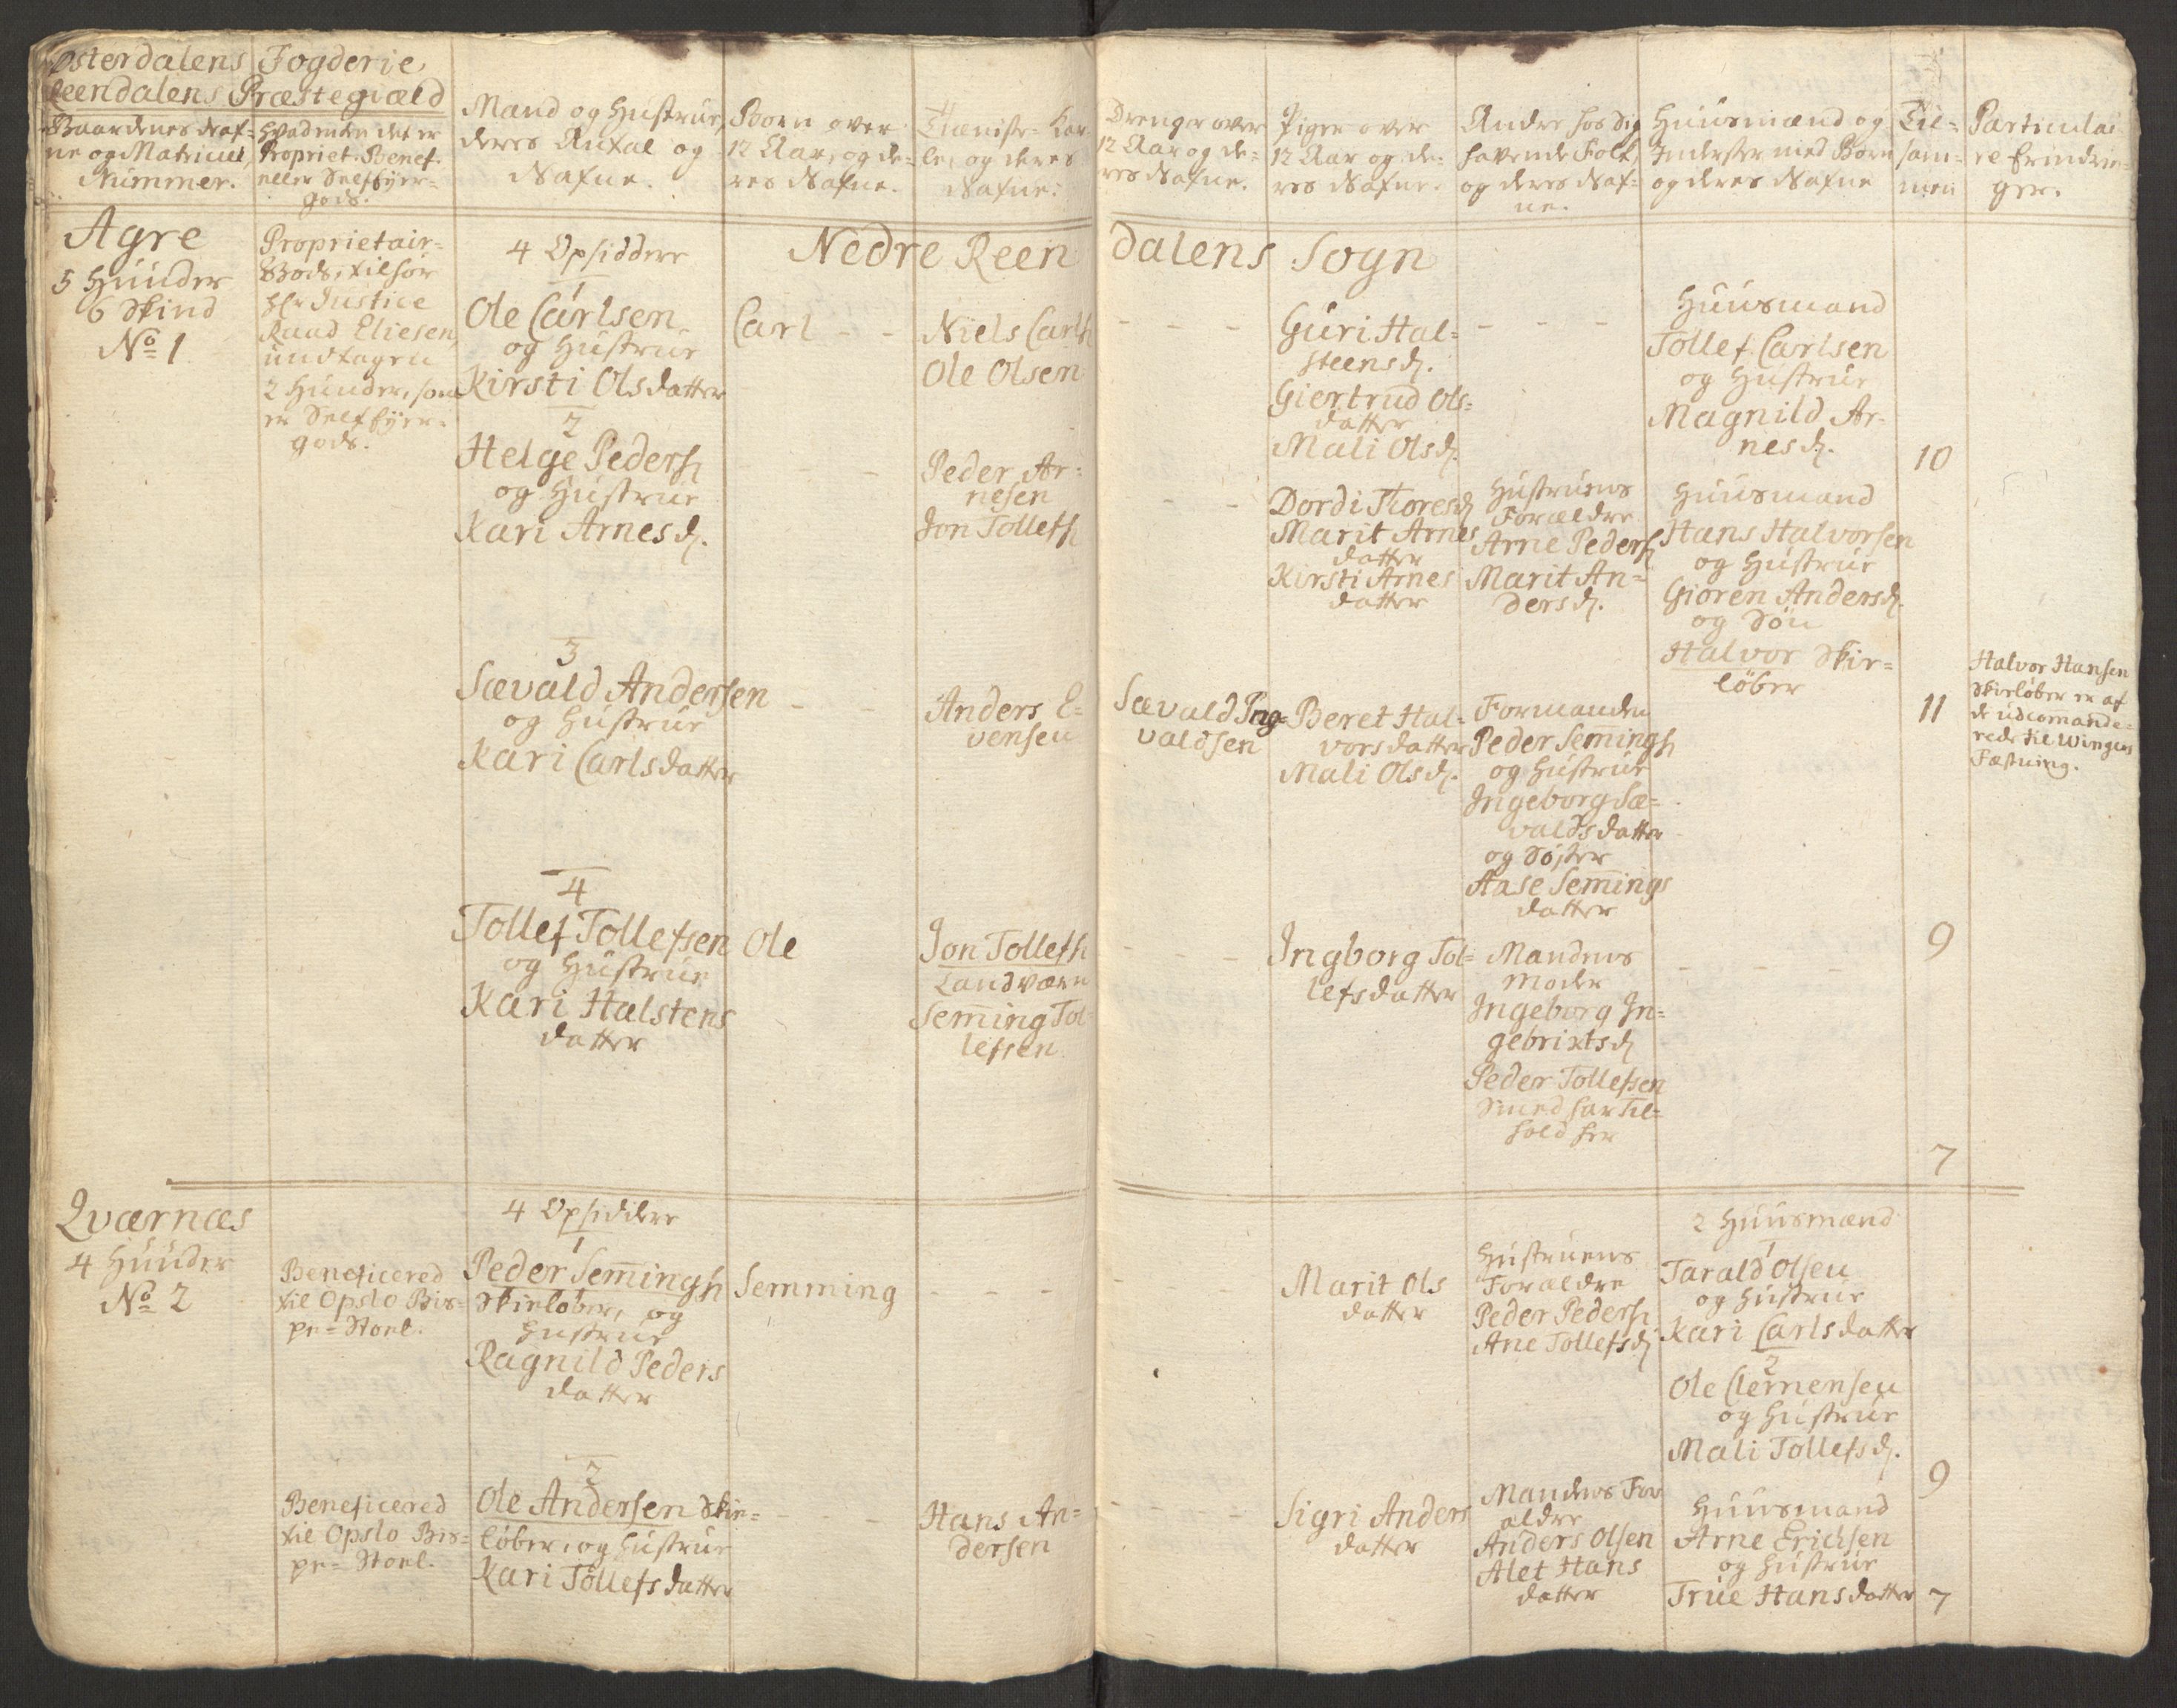 Østerdalens Fogderie
Reendalens Præstegiæld
Gaardenes Naf=
ne og Matricul
Nummer.
Hvad enten det er
Propriet. Benef.
eller Selfeyer=
gods.
Mand og Hustrue,
deres Antal og
Nafne.
Børn over
12 Aar, og de=
res Nafne.
Tieniste-Kar
le, og deres
Nafne.
Drenge over
12 Aar og de=
res Nafne.
Piger over
12 Aar og de=
res Nafne.
Andre hos sig
havende Folk,
og deres Naf=
ne.
Huusmænd og
Inderster med Børn
og deres Nafne
Til=
sam=
men
Particulai
re Erindrin=
ger.
Nedre Reen dalens Sogn
Agre
5 Hunder
6 Skind
No 1
Proprietair=
Gods, tilhør
Hr Justice
Raad Eliesen
undtagen
2 Hunder, som
er Selfeyer=
gods.
4 Opsiddere
1
Ole Carlsen
og Hustrue
Kirsti Olsdatter
Carl - -
Niels Carls.
Ole Olsen
- - -
Guri Hal=
steensd.
Giertrud Ols=
datter
Mali Olsd.
- - -
Huusmand
Tollef Carlsen
og Hustrue
Magnild Ar-
nesd.
10
2
Helge Peders.
og Hustrue
Kari Arnesd.
- -
Peder Ar=
nesen
Jon Tollefs.
- -
Dordi Toresd
Marit Arnes
datter
Kirsti Arnes
datter
Hustruens
Forældre
Arne Peders.
Marit An=
dersd.
Huusmand
Hans Halvorsen
og Hustrue
Gioren Andersd.
og Søn
Halvor Skie=
løber
11
Halvor Hansen
Skieløber er af
de udcomande=
rede til Winger
Fæstning.
3
Sævald Andersen
og Hustrue
Kari Carlsdatter
- -
Anders E=
vensen
Sævald Ing=
valdsen
Beret Hal=
vorsdatter
Mali Olsd.
Formanden
Peder Semings.
og Hustrue
Ingeborg Sæ=
valdsdatter
og Søster
Aase Semings
datter
9
4
Tollef Tollefsen
og Hustrue
Kari Halstens
datter
Ole
Jon Tollefs.
Landværn
Seming Tol=
lefsen
- - -
Ingborg Tol=
lefsdatter
Mandens
Moder
Ingeborg In=
gebrixtsd
Peder Tollefsen
Smed har Til=
hold her
- - -
7
Qvarnæs
4 Hunder
No 2
Beneficered
til Opslo Bis=
pe=Stoel.
4 Opsiddere
1
Peder Semings.
Skieløber, og
Hustrue
Ragnild Peders
datter
Semming
- - -
- -
Marit Ols
datter
Hustruens
Forældre
Peder Peders.
Ane Tollefsd
2 Huusmænd
1
Tarald Olsen
og Hustrue
Kari Carlsdatter
2
Ole Clemensen
og Hustrue
Mali Tollefsd.
9
Beneficered
til Opslo Bis=
pe=Stoel.
2
Ole Andersen Skie=
løber, og Hustrue
Kari Tollefsdatter
- - -
Hans An=
dersen
- - -
Sigri Anders
datter
Mandens For
ældre
Anders Olsen
Alet Hans
datter
Huusmand
Arne Erichsen
og Hustrue
True Hansdatter
7